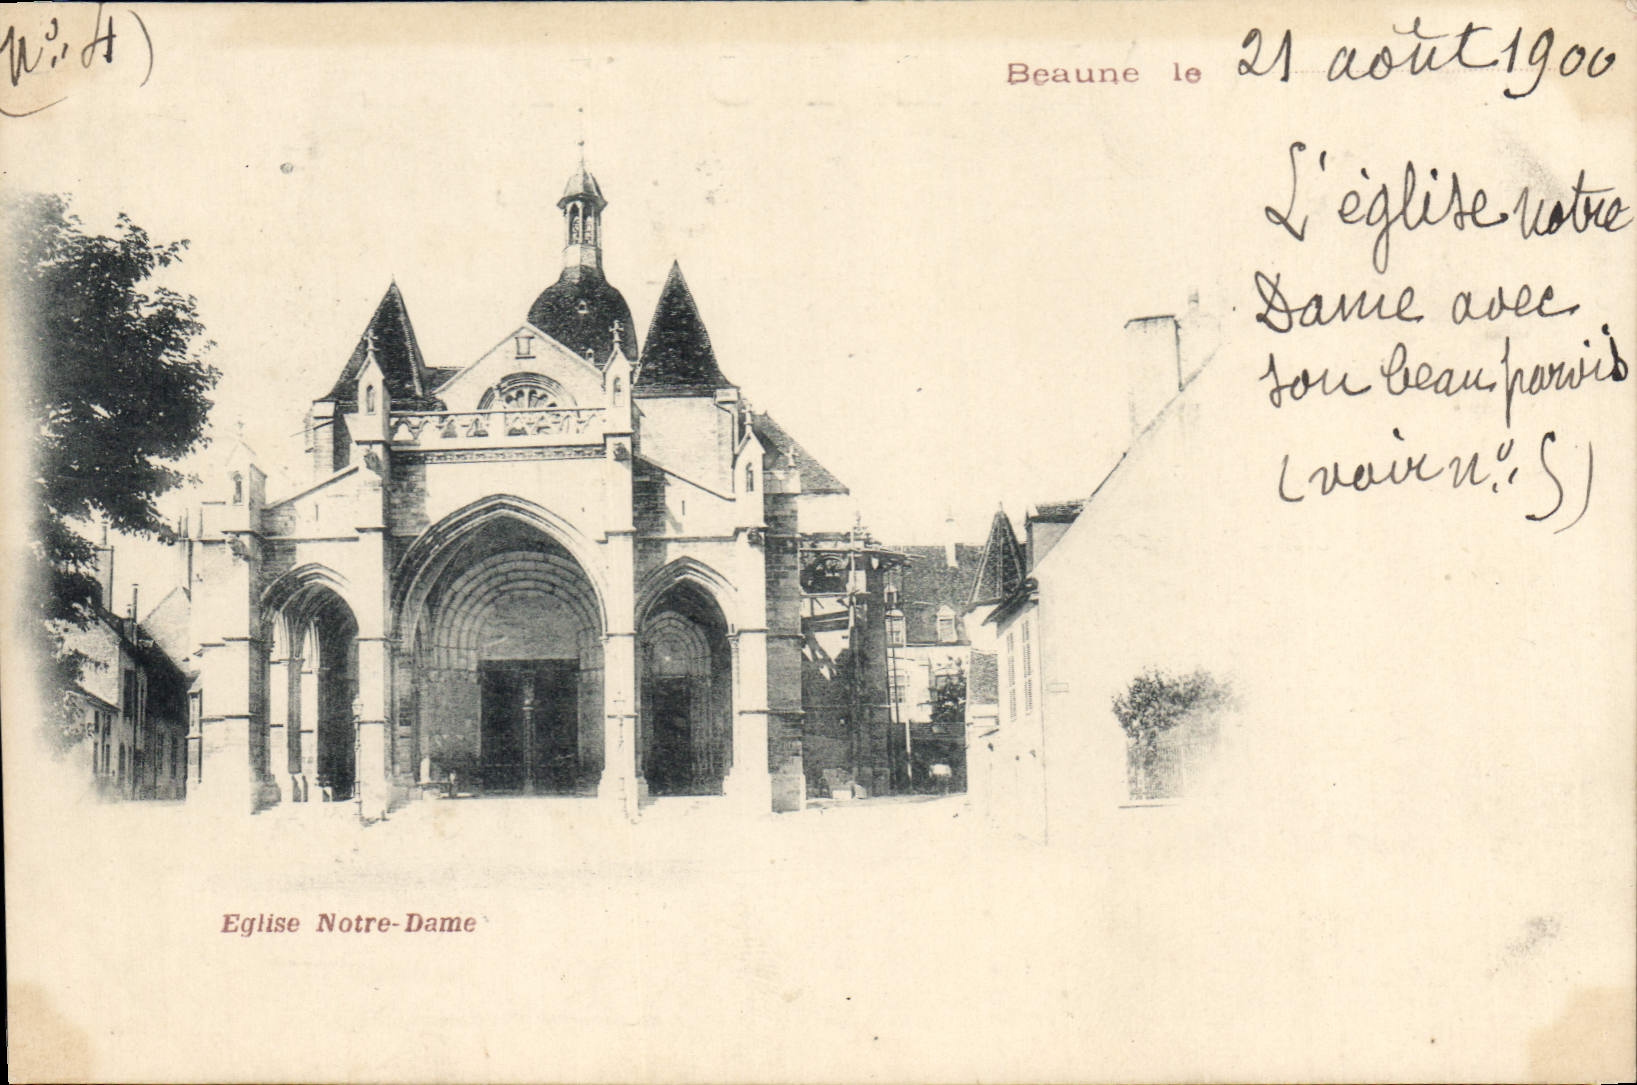 n°. 4)
Beaune le 21 août 1900
L'église notre
Dame avec
son beau parvis
(voir n°. 5)
Eglise Notre-Dame